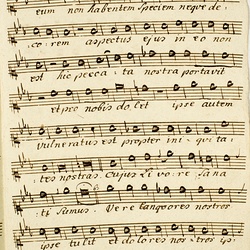 eum non habentem speciem neque de,
co, rem aspectus ejus in eo non
est hic pecca, ta nostra portavit
et pro nobis do, let ipse autem
Vulneratus est propter ini, qui ta,
tes nostras. Cujus li vo, re sa na
ti sumus. Vere languores nostros
ipse tulit et dolores nos, tros ip,